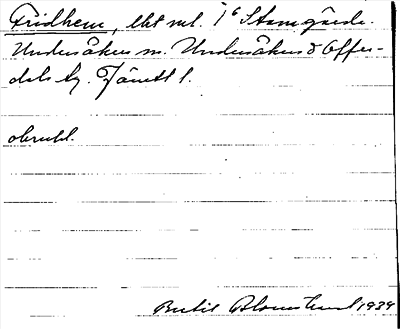 Fridhem, lht nel. 1⁶ Stamgärde.
Undersåkers sn. Undersåkers o Offer-
dals tg. Jämtl l.
obrukl.
Bertil Blomstrand 1939